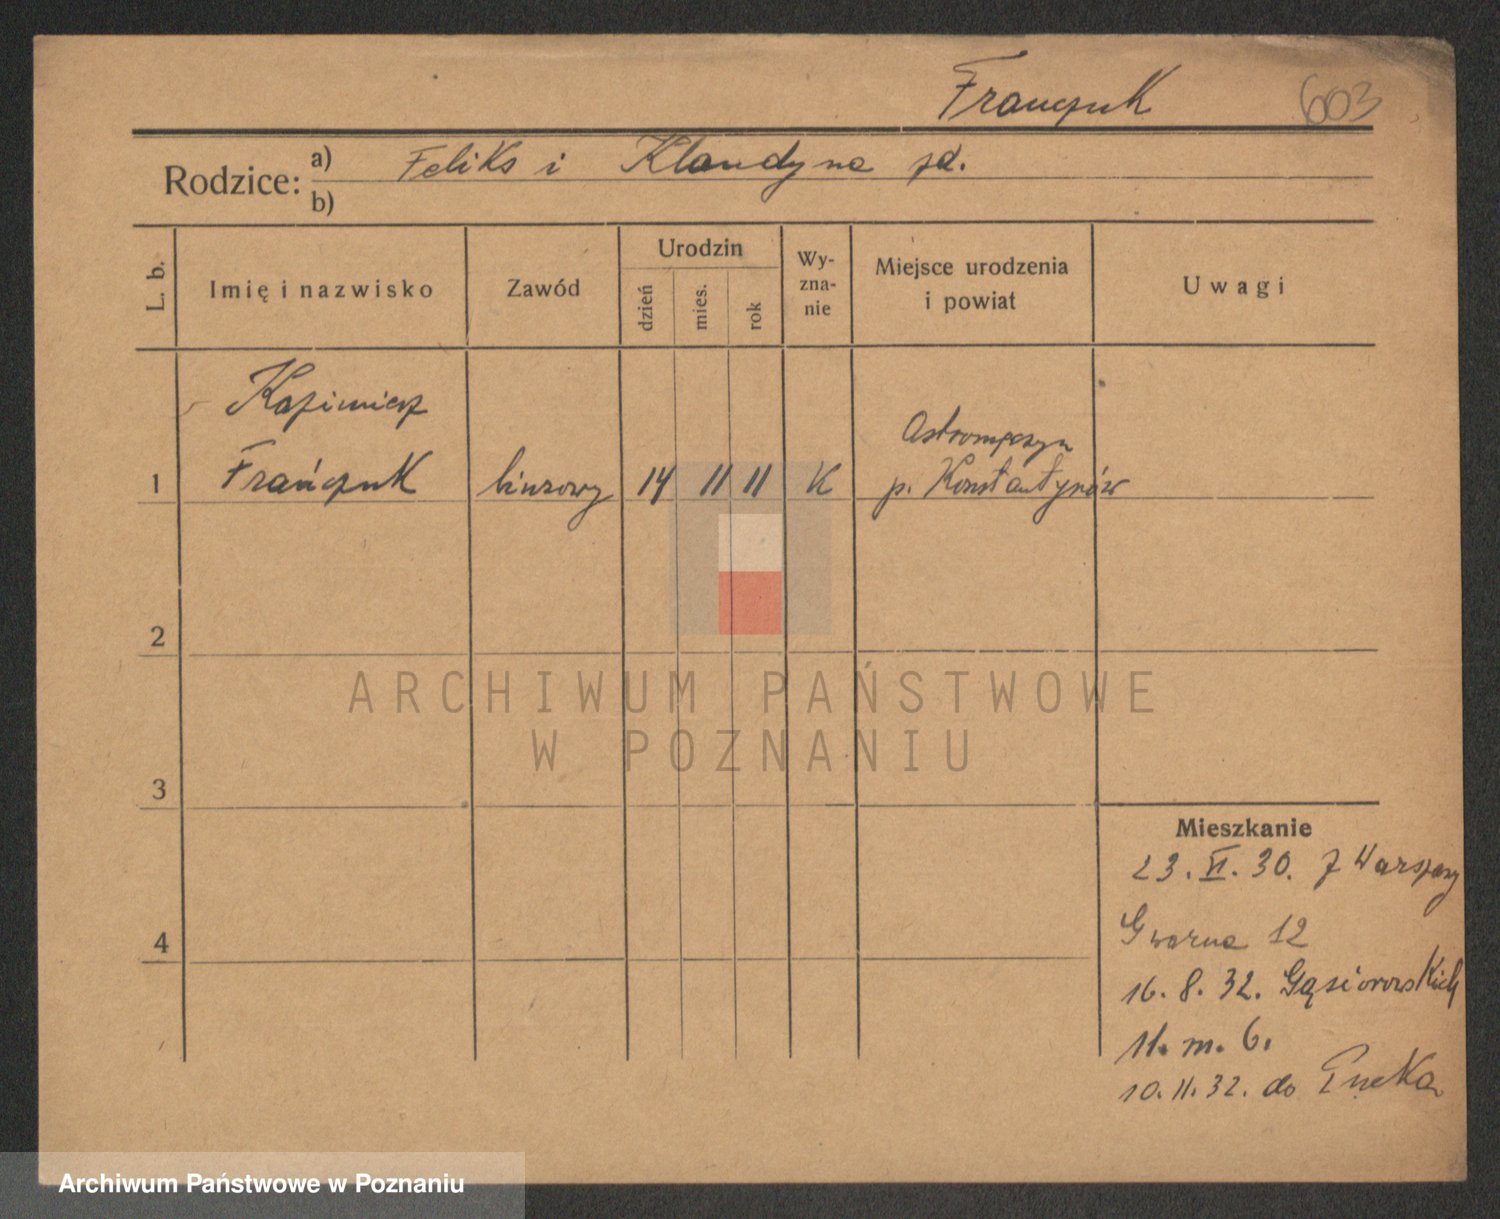 Frańczuk 603
Rodzice: a) Feliks i Klaudyna zd.
b)
L. b. Imię i nazwisko Zawód Urodzin dzień mies. rok Wy-zna-nie Miejsce urodzenia i powiat Uwagi
Kazimierz
1 Frańczuk biurowy 14 11 11 K
p. Konstantynów
2
3
4
ARCHIWUM PAŃSTWOWE
W POZNANIU
Mieszkanie
23. VI. 30. z Warszawy
Gwarna 12
16. 8. 32. Gąsiorowskich
11. m. 6.
10. 11. 32. do Pucka
Archiwum Państwowe w Poznaniu